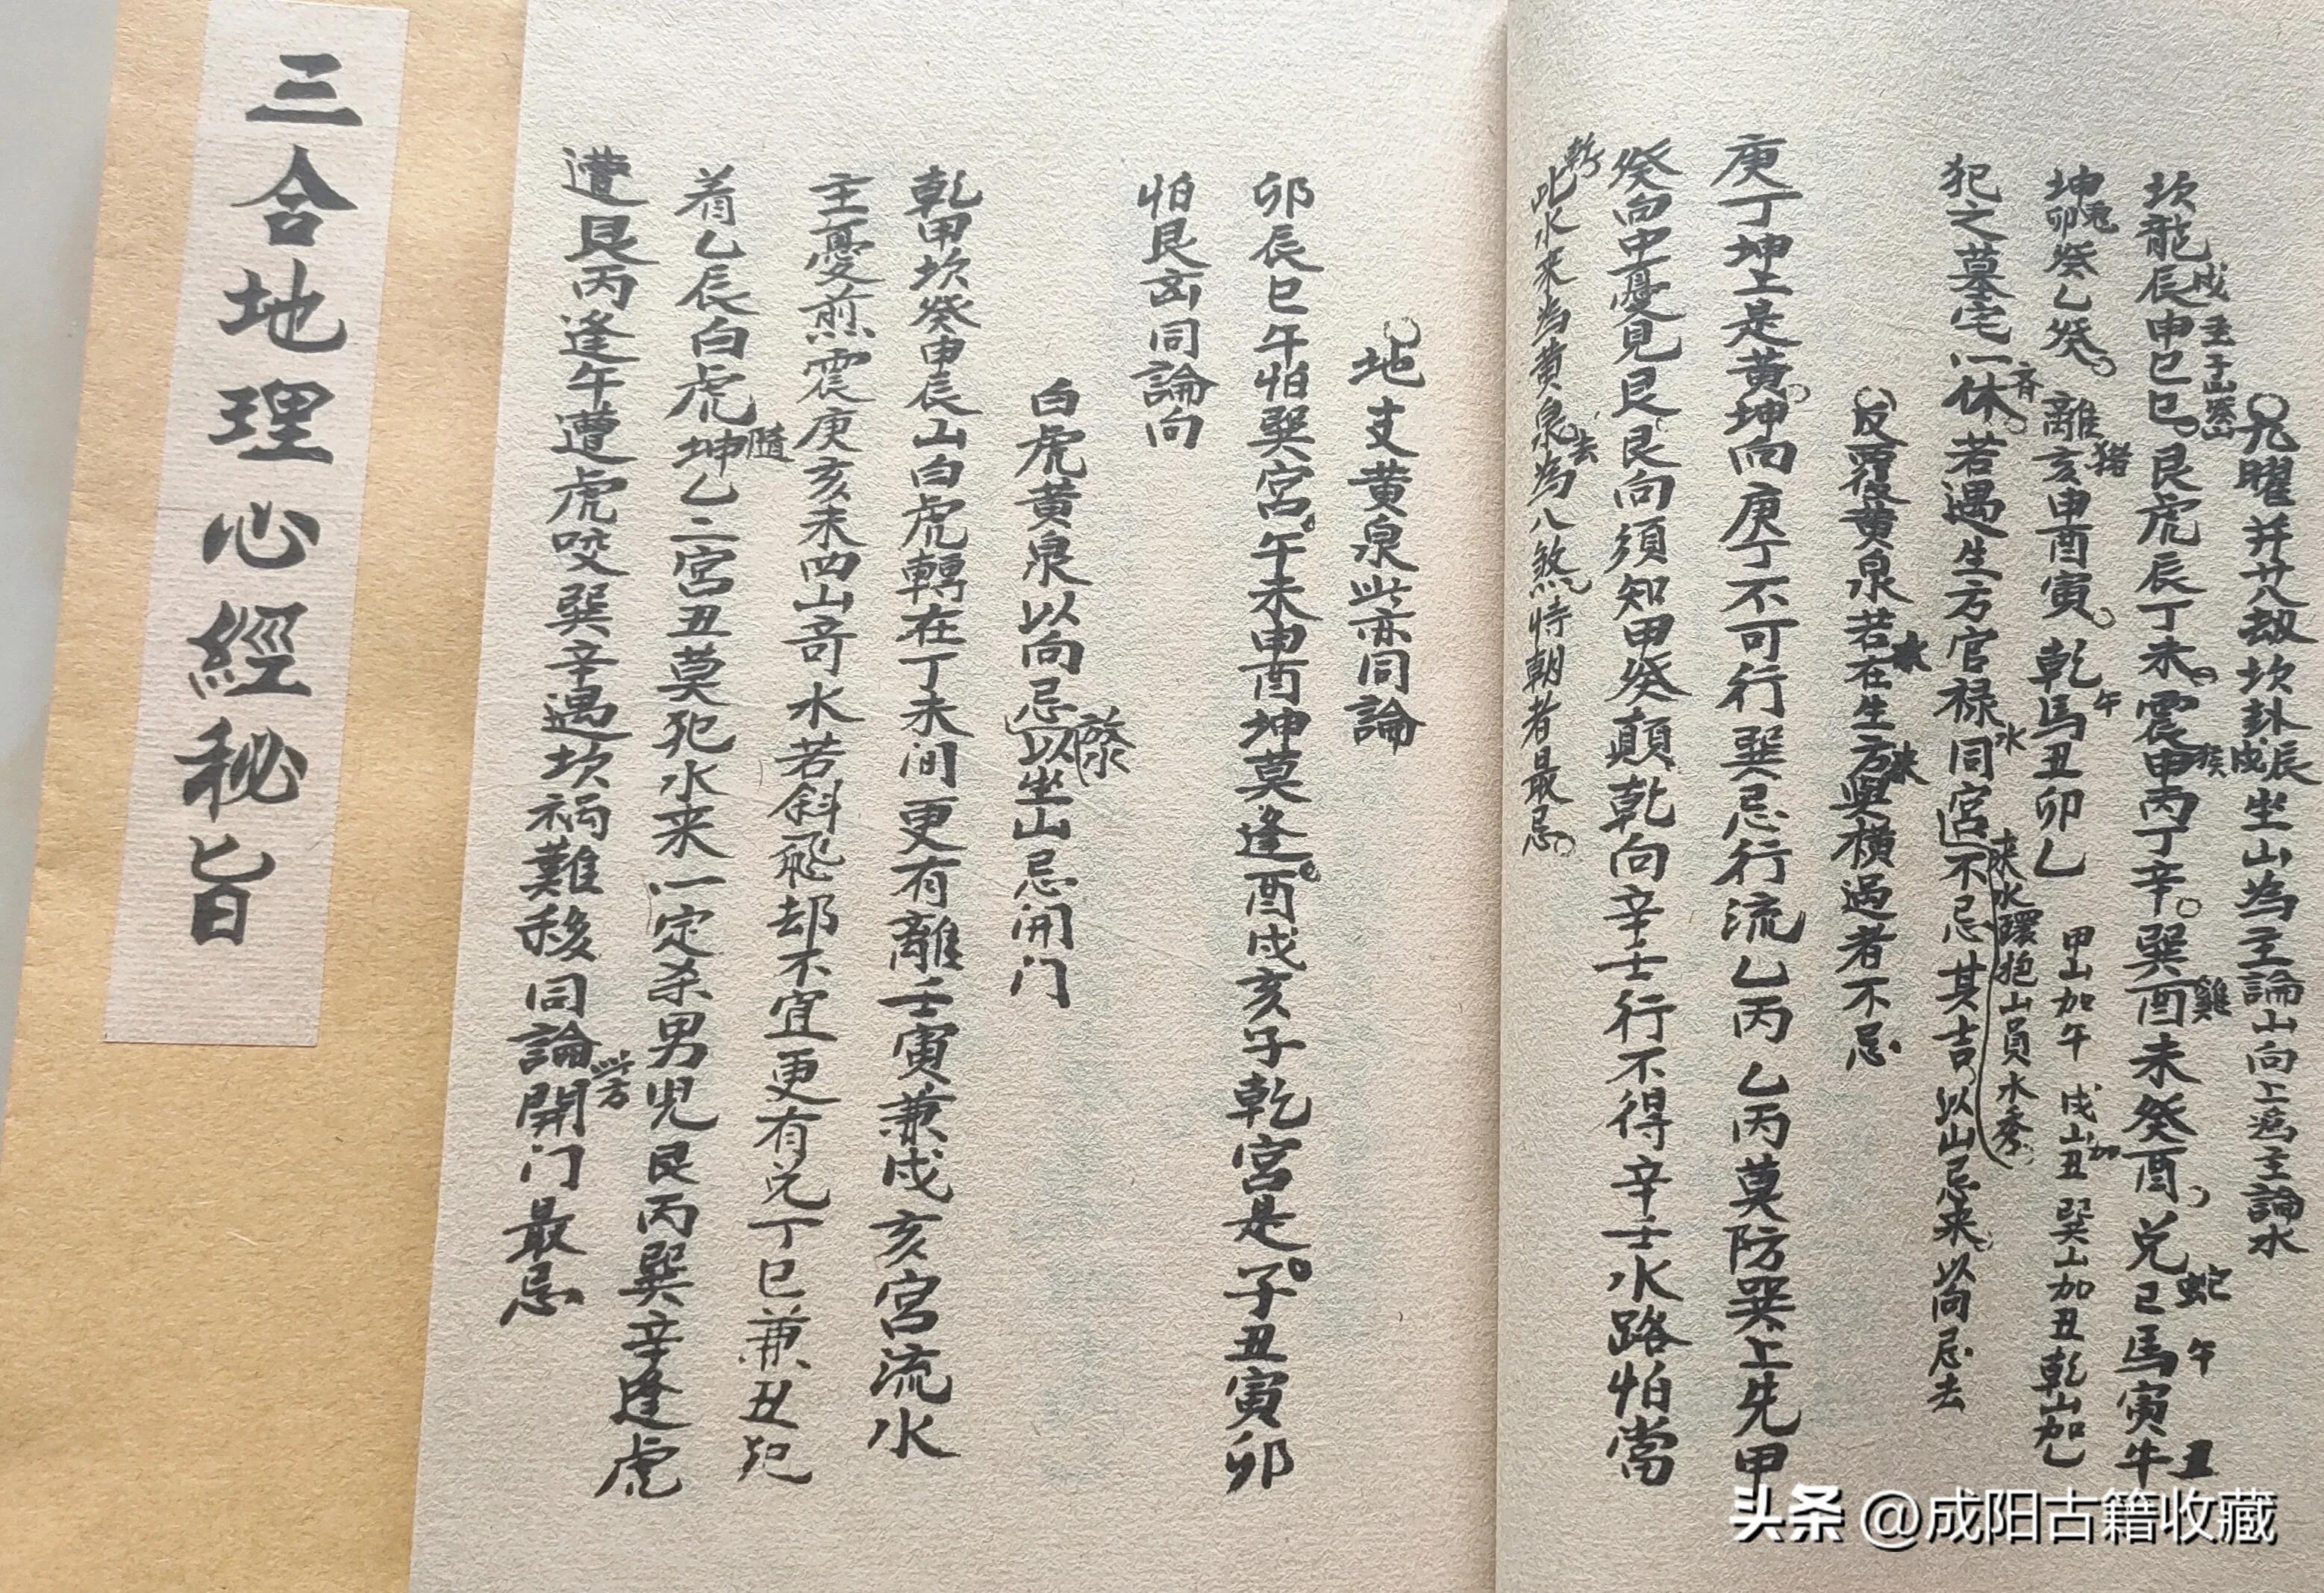 兄曜并廿八劫坎卦辰坐山為主論山向上為主論水
戌壬子山癸山
坎龍辰申巳巳艮虎辰丁未震申丙丁辛巽酉未癸酉兌巳馬寅牛
猴戌
雞
蛇午丑
坤卯癸乙癸離亥申酉寅乾馬丑卯乙甲山加午戌山丑巽山加丑乾山加乙
兔
猪
午
加
犯之墓宅一休若遇生方官禄同宫不忌其吉以山忌来以向忌去
齐
水
来水環抱山員水秀
反覆黄泉若在生方與橫過者不忌
水
来
庚丁坤上是黄坤向庚丁不可行巽忌行流乙丙乙丙莫防巽上先甲
癸向中憂見艮艮向須知甲癸顛乾向辛壬行不得辛壬水路怕當
乾
此水来為黄泉去為八煞恃朝者最忌
地支黄泉此亦同論
卯辰巳午怕巽宫午未申酉坤莫逢酉戌亥子乾宫是子丑寅卯
怕艮山同論向
白虎黄泉以向忌以坐山忌開门
放水
乾甲坎癸申辰山白虎轉在丁未间更有離壬寅兼戌亥宫流水
主憂煎震庚亥未四山奇水若斜飛却不宜更有兑丁巳兼丑犯
着乙辰白虎坤乙二宫丑莫犯水来一定杀男児艮丙巽辛逢虎
隨
遭艮丙逢午遭虎咬巽辛遇坎禍難移同論開门最忌
此方
三合地理心經秘旨
头条 @成阳古籍收藏